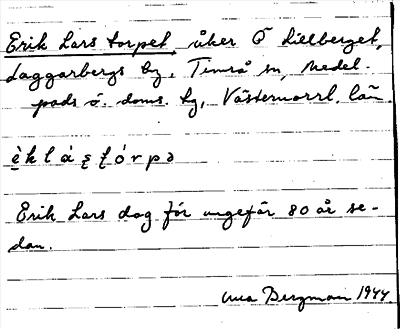 Erik Lars torpet, åker Ö Lillberget,
Laggarbergs by, Timrå sn, Medel-
pads ö. doms. tg, Västernorrl. län.
è k l á ȿ t ó r p ə
Erik Lars dog för ungefär 80 år se-
dan.
Bergman 1944.